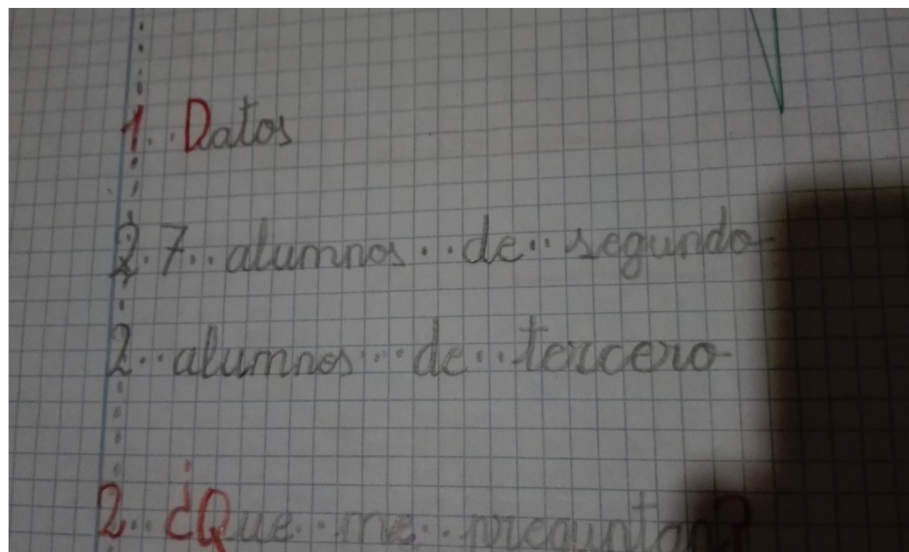 1. Datos
27 alumnos de segundo
2 alumnos de tercero
2. ¿Que me preguntan?